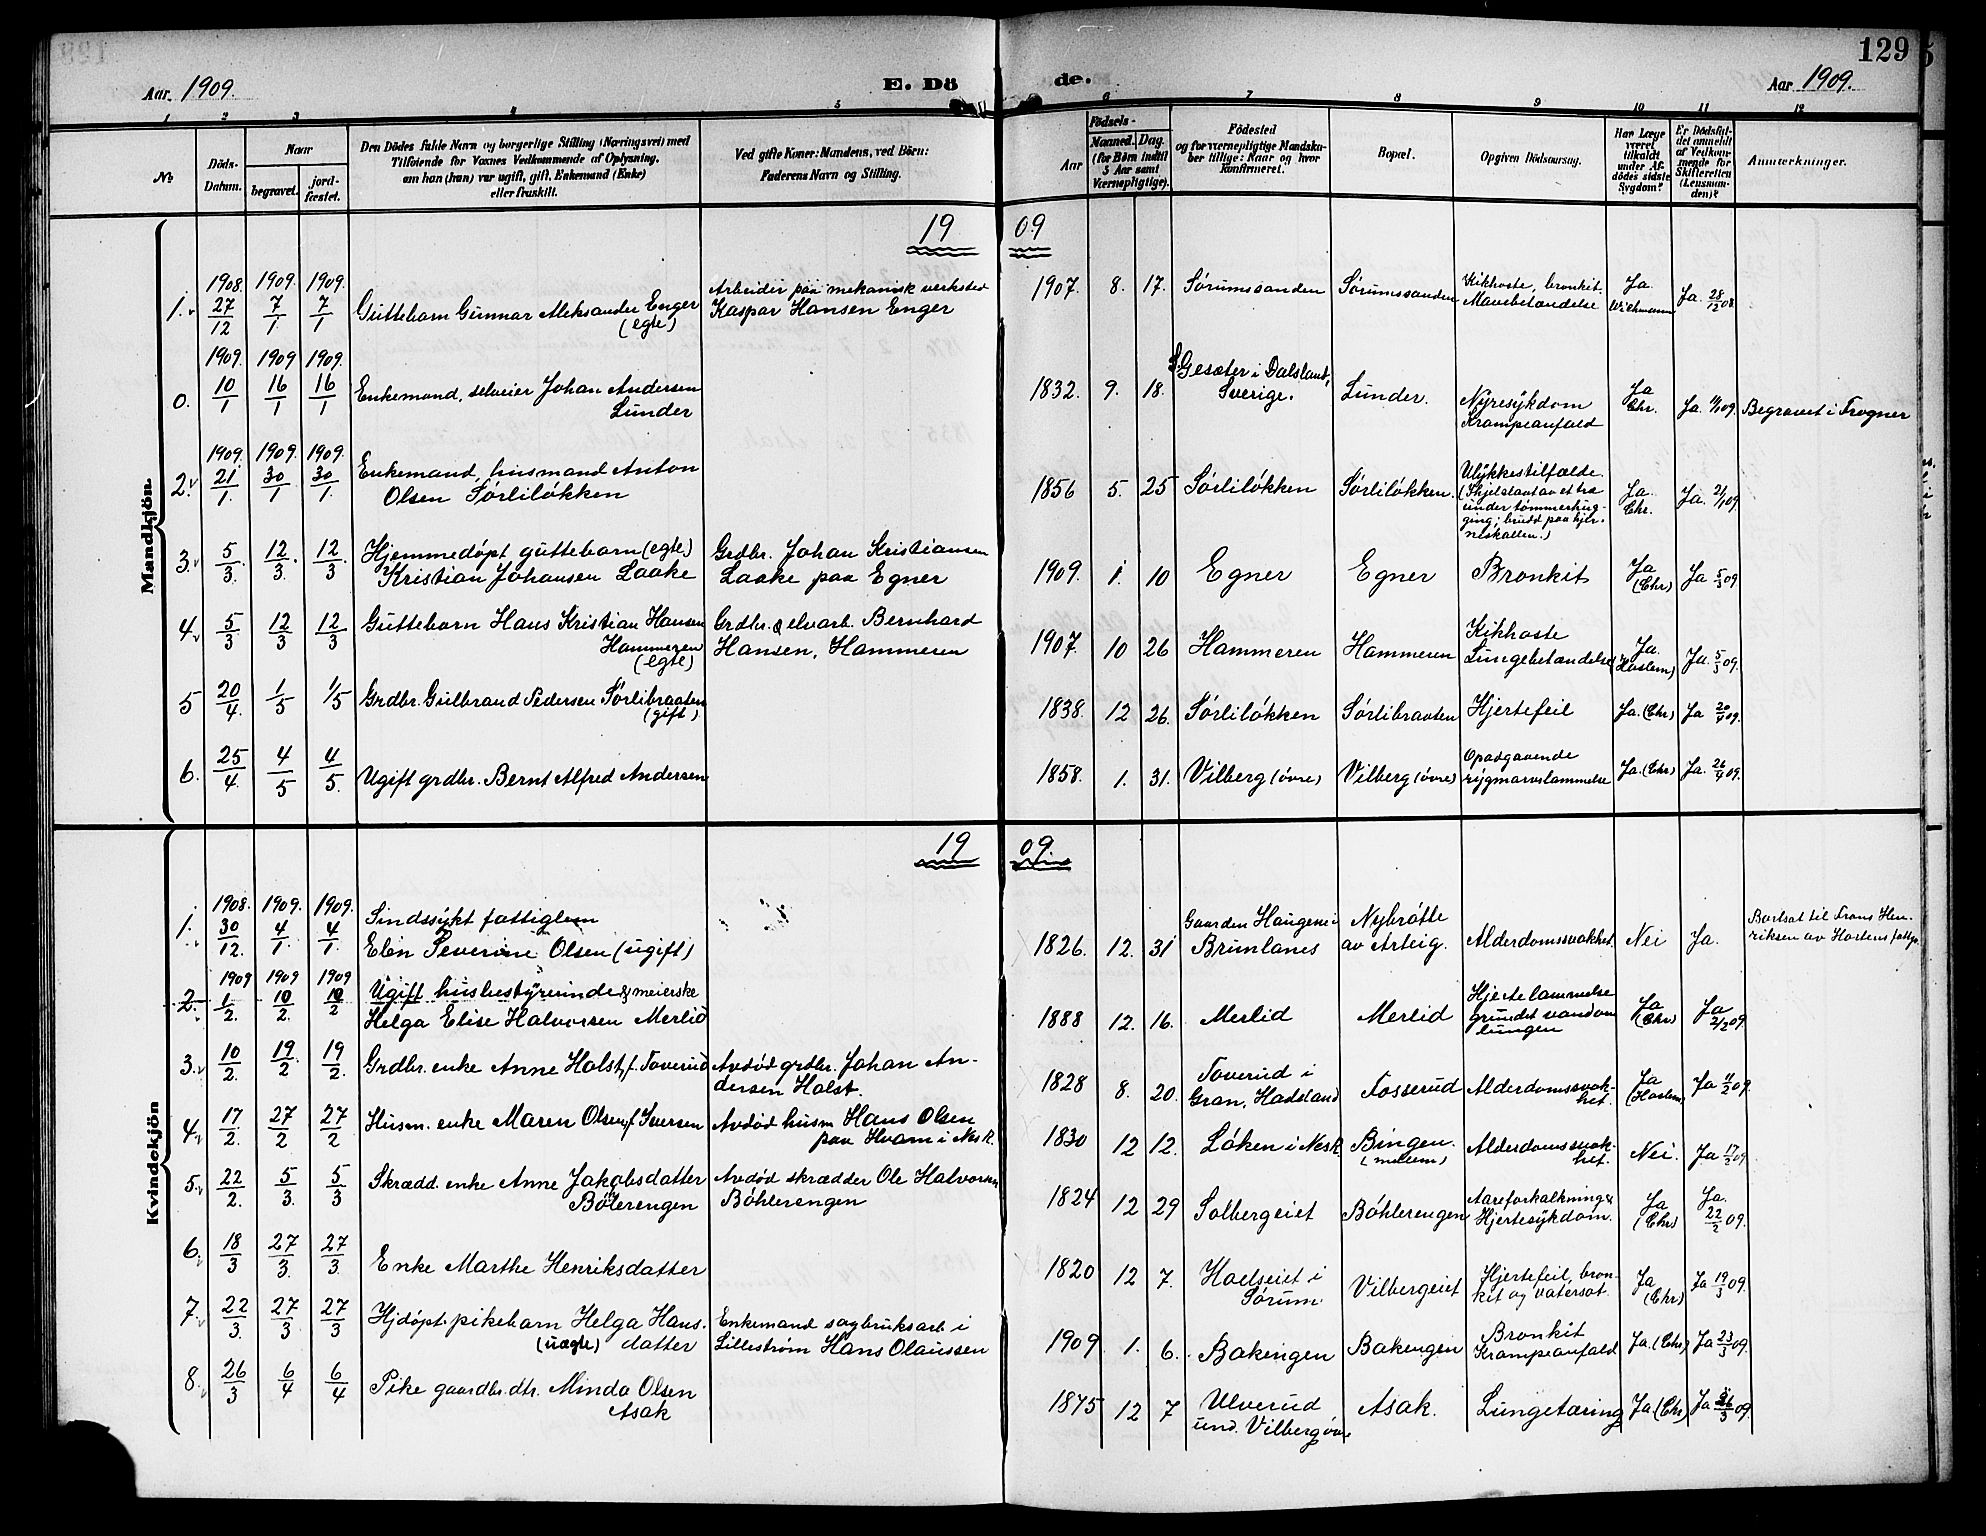 129
Aar. 1909. E. Dö de. Aar 1909.
1 2 3 4 5 6 7 8 9 10 11 12
No
Döds-Datum.
Naar
begravet. jord-fæstet.
Den Dödes fulde Navn og borgerlige Stilling (Næringsvei) med
Tilföiende for Voxnes Vedkommende af Oplysning,
om han (hun) var ugift, gift, Enkemand (Enke)
eller fraskilt.
Ved gifte Koner: Mandens, ved Börn:
Faderens Navn og Stilling.
Födsels-
Aar Maaned. Dag.
(for Börn indtil
5 Aar samt
Værnepligtige).
Födested
og for værnepligtige Mandska-
ber tillige: Naar og hvor
konfirmeret.
Bopæl.
Opgiven Dödsaarsag.
Har Læge
været
tilkaldt
under Af-
dödes sidste
Sygdom?
Er Dödsfal-
det anmeldt
af Vedkom-
mende for
Skifteretten
(Lensman-
den)?
Anmærkninger.
Mandkjön.
19 09
1. 1908. 27/12 1909. 7/1. 1909. 7/1 Guttebarn Gunnar Aleksander Enger (egte) Arbeider paa mekanisk verksted Kaspar Hansen Enger 1907. 8. 17. Sørumsanden Sørumssanden Kikhoste, bronkit. Mavebetændelse Ja. Wichmann Ja. 28/12 08
0. 1909. 10/1 1909 16/1 1909. 16/1 Enkemand, selveier Johan Andersen Lunder 1832. 9. 18. Gesæter i Dalsland, Sverige. Lunder. Nyresykdom Krampeanfald Ja Chr. Ja. 11/1 09. Begravet i Frogner
2. 1909. 21/1. 1909. 30/1 1909. 30/1. Enkemand, husmand Anton Olsen Sørliløkken 1856 5. 25 Sørliløkken Sørliløkken. Ulykkestilfælde. (Ihjelslaat av et træ under tømmerhug-ging; brudd paa hjer-neskallen.) Ja. Chr. Ja. 21/1 09.
3. 5/3. 12/3. 12/3 Hjemmedøpt guttebarn (egte) Kristian Johansen Laake Grdbr. Johan Kristiansen Laake paa Egner 1909. 1. 10 Egner Egner Bronkit Ja (Chr) Ja 5/3 09
4. 5/3 12/3 12/3 Guttebarn Hans Kristian Hansen Hammeren (egte) Grdbr. & elvarb. Bernhard Hansen, Hammeren 1907. 10 26 Hammeren Hammeren Kikhoste Lungebetændelse Ja. (Haslem) Ja. 5/3 09.
5 20/4. 1/5 1/5 Grdbr. Gulbrand Pedersen Sørlibraaten (gift) 1838. 12 26. Sørliløkken Sørlibraaten Hjertefeil Ja. (Chr) Ja 20/4 09.
6. 25/4. 4/5 4/5. Ugift grdbr. Bernt Alfred Andersen 1858. 1. 31. Vilberg (øvre) Vilberg (øvre) Opadgaaende rygmarvslammelse Ja. (Chr) Ja. 26/4 09.
Kvindekjön
19 09
1. 1908. 30/12. 1909. 4/1. 1909. 4/1. Sindssykt fattiglem Elen Severine Olsen (ugift) 1826. 12. 31 Gaarden Haugene i Brunlanes Nybrøtte av Arteig. Alderdomssvakhet. Nei Ja. Bortsat til Frans Hen-riksen av Hortens fattigv.
2. 1909 1/2. 1909 10/2. 1909 10/2 Ugift husbestyrerinde & meierske Helga Elise Halvorsen Merlid 1888 12. 16. Merlid Merlid Hjertelammelse grundet vand om lungen Ja (Chr) Ja 2/2 09.
3. 10/2. 19/2 19/2. Grdbr. enke Anne Holst, f. Toverud Avdød grdbr. Johan An-dersen Holst. 1828 8. 20. Toverud i Gran, Hadeland Fosserud Alderdomssvak-het. Ja (Haslem) Ja 11/2 09
4. 17/2. 27/2 27/2 Husm. enke Maren Olsen, f. Iversen Avdød husm Hans Olsen paa Hvam i Nesk. 1830 12 12. Løken i Nesk. Bingen. (mellem) Alderdomssvak-het. Nei. Ja 17/2 09
5. 22/2. 5/3. 5/3 Skrædd. enke Anne Jakobsdatter Bølerengen Avdød skrædder Ole Halvorsen Bøhlerengen 1824 12 29 Solbergeiet Bøhlerengen Aareforkalkning & Hjertesykdom. Ja (Chr) Ja. 22/2 09.
6. 18/3 27/3. 27/3. Enke Marthe Henriksdatter 1820 12 7. Hoelseiet i Sørum. Vilbergeiet Hjertefeil, bron-kit og vatersot. Ja (Chr) Ja 19/3 09.
7. 22/3. 27/3 27/3 Hjdøpt pikebarn Helga Hans-datter (uægte) Enkemand sagbruksarb. i Lillestrøm Hans Olaussen 1909 1. 6. Bakengen Bakengen Bronkit Krampeanfald Ja. (Chr) Ja 23/3 09.
8. 26/3 6/4 6/4 Pike gaardbr. dtr. Minda Olsen Asak 1875 12 7 Ulverud und. Vilberg øvre Asak. Lungetæring Ja (Chr) Ja 26/3 09.